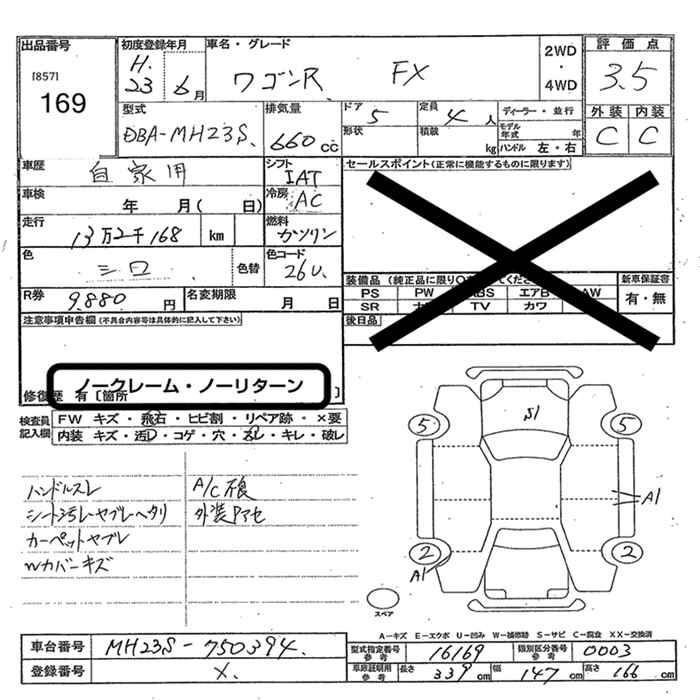 出品番号
[857]
169
初度登録年月
H.
23 6月
車名・グレード
ワゴンR FX
2WD
・
4WD
評価点
3.5
型式
DBA-MH23S
排気量
660cc
ドア 5
形状
定員 4人
積載 kg
ディーラー・並行
モデル年式 年
ハンドル 左・右
外装 内装
C C
車歴
自家用
シフト
IAT
車検
年 月( 日)
冷房
AC
走行
13万2千168 km
燃料
ガソリン
色
シロ
色替
色コード
26U
R券
9.880円
名変期限
月 日
セールスポイント(正常に機能するものに限ります)
装備品 (純正品に限り○
ください)
PS PW ABS エアB AW
SR TV カワ
新車保証書
有・無
後日品
注意事項申告欄(不具合内容等は具体的に記入して下さい)
ノークレーム・ノーリターン
修復歴 有 [箇所 ]
検査員
記入欄
FW キズ・飛石・ヒビ割・リペア跡・×要
内装 キズ・汚レ・コゲ・穴・スレ・キレ・破レ
ハンドルスレ
シート汚レヤブレヘタリ
カーペットヤブレ
Wカバーキズ
A/C不良
外装Pアセ
S1
5
5
A1
2
2
A1
スペア
A-キズ E-エクボ U-凹み W-補修跡 S-サビ C-腐食 XX-交換済
車台番号
MH23S-750394
登録番号
X.
型式指定番号
参考
16169
類別区分番号
参考
0003
車庫証明用
参考
長さ 339cm
幅 147cm
高さ 166cm